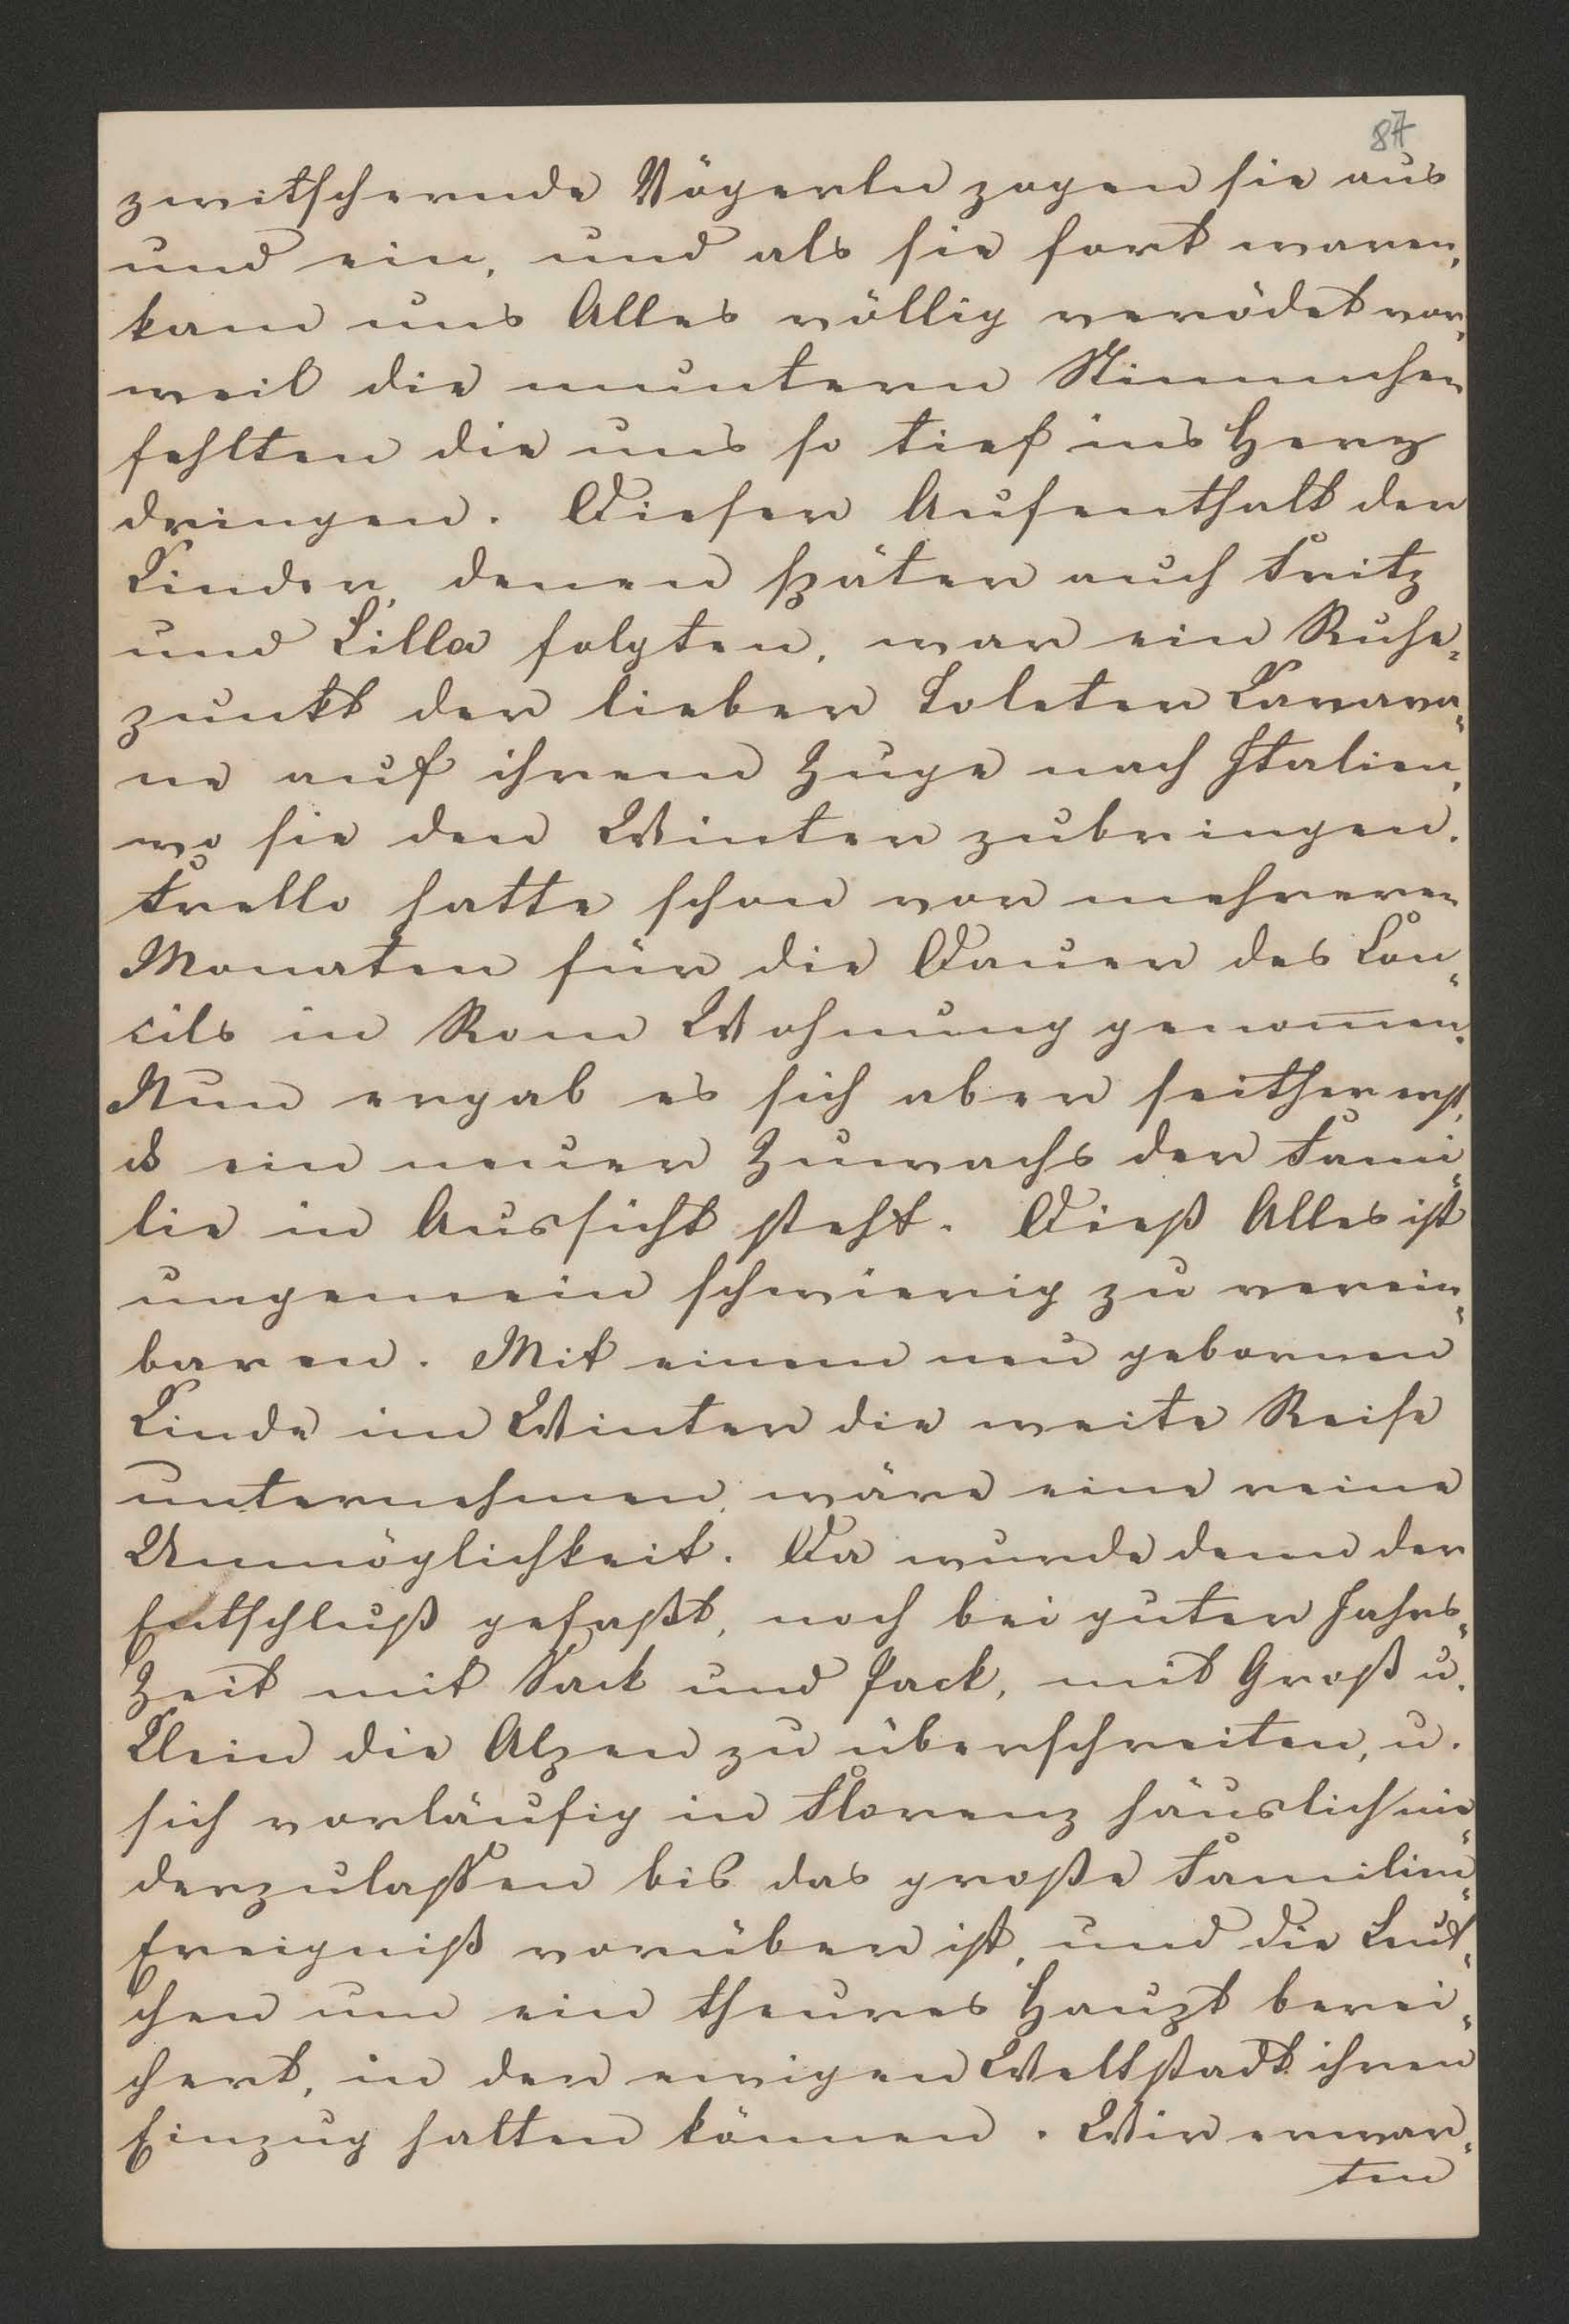 87
zwitschernde Vögerln zogen sie aus
und ein, und als sie fort waren,
kam uns Alles völlig verödet vor,
weil die muntern Stimmchen
fehlten die uns so tief ins Herz
dringen. Dieser Aufenthalt der
Kinder, denen später auch Fritz
und Lilla folgten, war ein Ruhe-
punkt der lieben Karava-
ne auf ihrem Zuge nach Italien,
wo sie den Winter zubringen.
hatte schon vor mehreren
Monaten für die Dauer des Con-
cils in Rom Wohnung genom̅en.
Nun ergab es sich aber seither erst,
ein neuer Zuwachs der Fami-
lie in Aussicht steht. Dieß Alles ist
ungemein schwierig zu verein-
baren. Mit einem neu gebornen
Kinde im Winter die weite Reise
unternehmen, wäre eine reine
Unmöglichkeit. Da wurde denn der
Entschluß gefaßt, noch bei guter Jahrs-
Zeit mit Sack und Pack, mit Groß u.
Klein die Alpen zu überschreiten, u.
sich vorläufig in Florenz häuslich nie-
derzulassen bis das große Familien-
Ereigniß vorüber ist, und die Leut-
chen um ein theures Haupt berei-
chert, in der ewigen Weltstadt ihren
Einzug halten können. Wir erwar-
ten